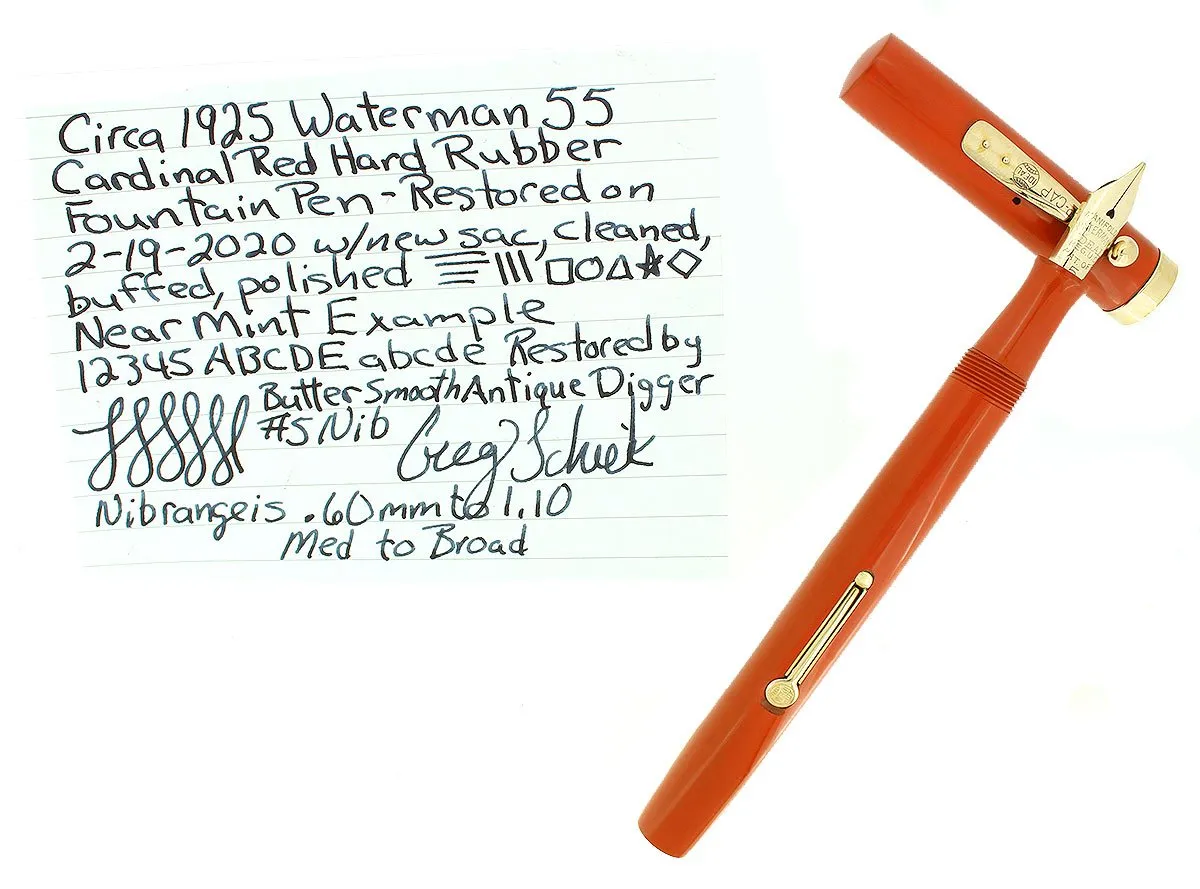 Circa 1925 Waterman 55
Cardinal Red Hard Rubber
Fountain Pen - Restored on
2-19-2020 w/new sac, cleaned,
buffed, polished
Near Mint Example
12345 ABCDE abcde Restored by
Butter Smooth Antique Digger
#5 Nib Greg Schiek
Nib range is .60mm to 1.10
Med to Broad
IDEAL
-CAP